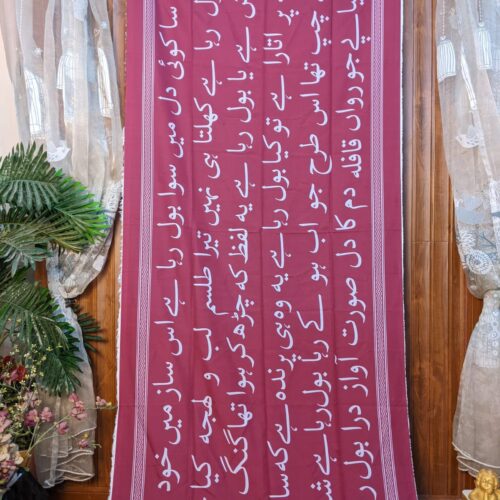 سا کوئی دل میں سوا بول رہا ہے اس ساز میں خود
رہا ہے کھلتا ہی نہیں تیرا طلسم لب و لهجه کیا
ہے یا بول رہا ہے یہ لفظ کہ چڑھ کر ہوا تھا گنگ
پر اتارا ہے تو کیا بول رہا ہے یہ وہی پرندہ ہے کہ سا
چپ تھا اس طرح جو اب ہو کے رہا بول رہا ہے
پے جو رواں قافلہ دم کا دل صورت آواز درا بول